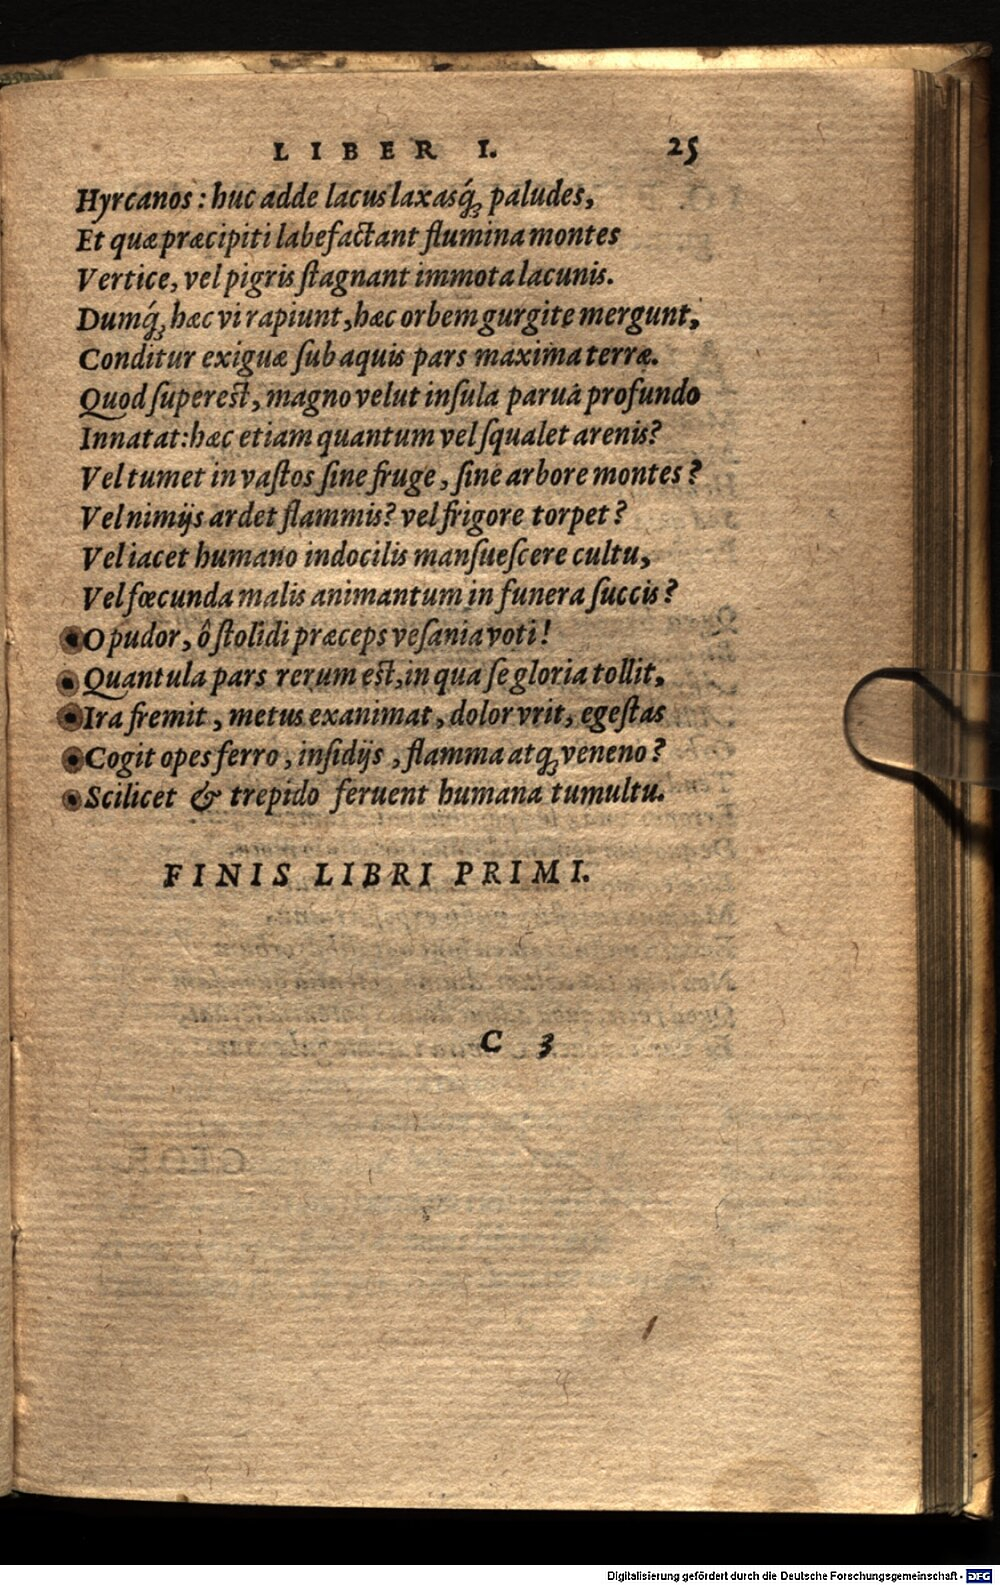 LIBER I. 25
Hyrcanos: huc adde lacus laxasq́; paludes,
Et quæ præcipiti labefactant flumina montes
Vertice, vel pigris stagnant immota lacunis.
Dumq́; hæc vi rapiunt, hæc orbem gurgite mergunt,
Conditur exiguæ sub aquis pars maxima terræ.
Quod superest, magno velut insula parua profundo
Innatat: hæc etiam quantum vel squalet arenis?
Vel tumet in vastos sine fruge, sine arbore montes?
Vel nimijs ardet flammis? vel frigore torpet?
Vel iacet humano indocilis mansuescere cultu,
Vel fœcunda malis animantum in funera succis?
O pudor, ô stolidi præceps vesania voti!
Quantula pars rerum est, in qua se gloria tollit,
Ira fremit, metus exanimat, dolor vrit, egestas
Cogit opes ferro, insidijs, flamma atq; veneno?
Scilicet & trepido feruent humana tumultu.
FINIS LIBRI PRIMI.
C 3
Digitalisierung gefördert durch die Deutsche Forschungsgemeinschaft - DFG